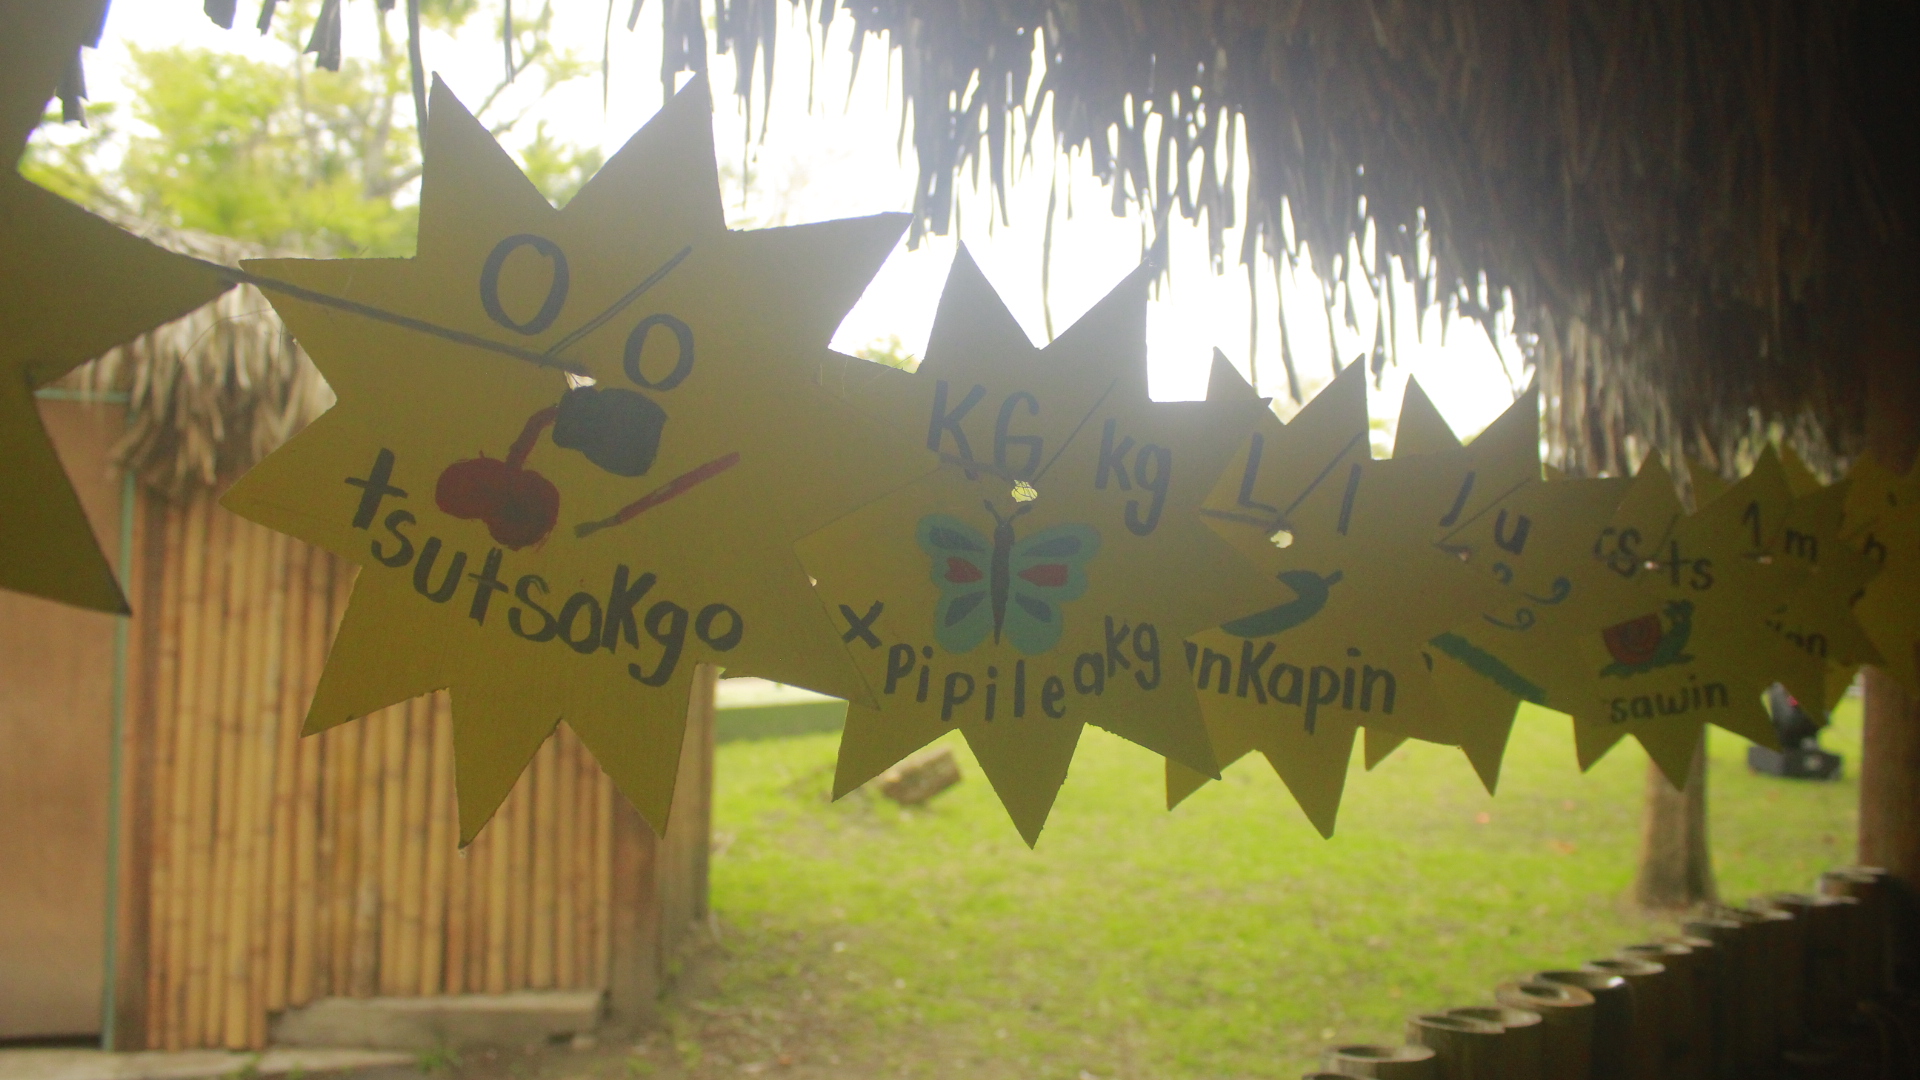 O/o
tsutsoKgo
KG/kg
xpipileakg
L/l
nKapin
J/u
cs-ts
sawin
1 m